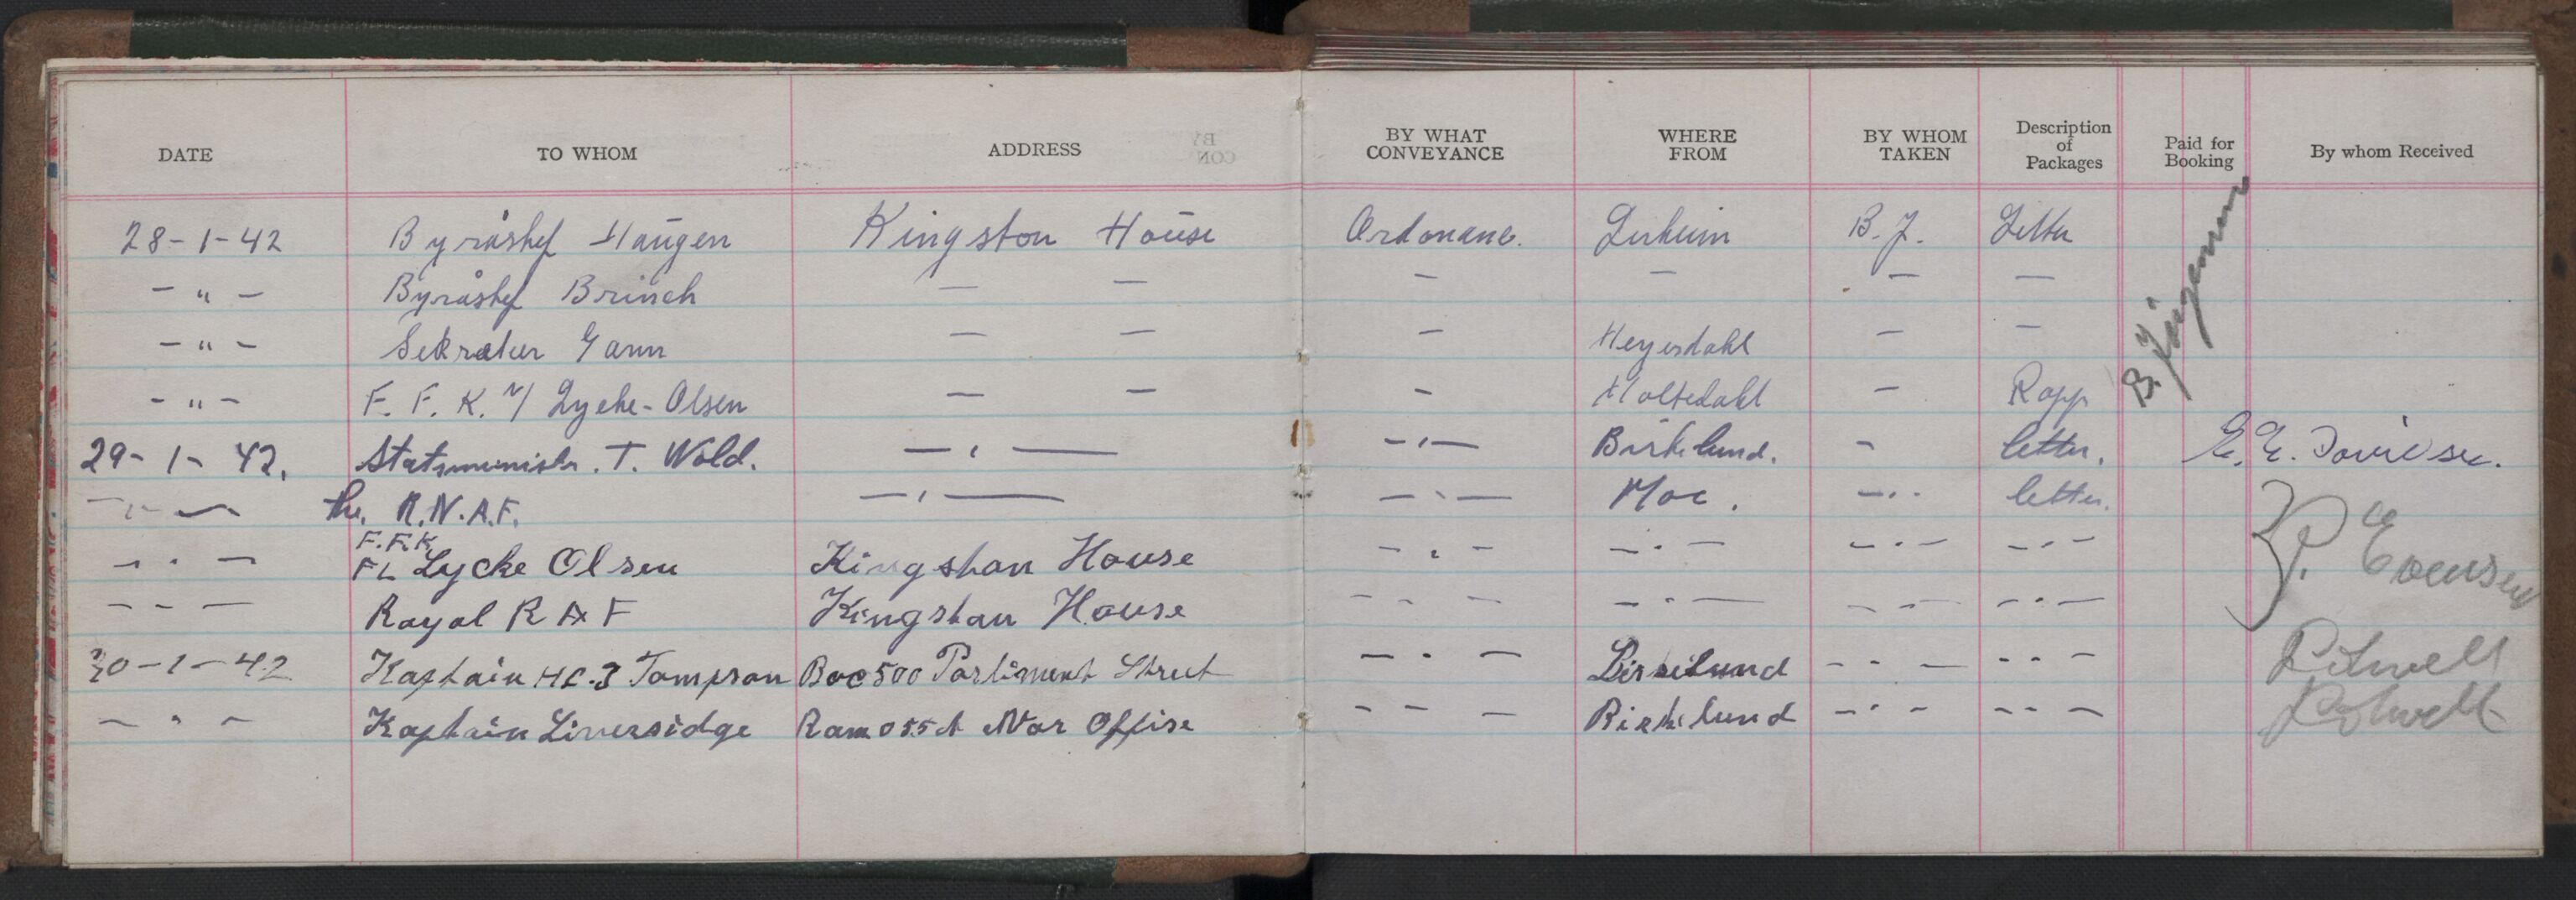 DATE TO WHOM ADDRESS BY WHAT CONVEYANCE WHERE FROM BY WHOM TAKEN Description of Packages Paid for Booking By whom Received
28-1-42 Byråshef Haugen Kingston House Ordonanc. B.J. Letter
- " - Byråshef Brinch — — — — — —
- " - Sekretær — — — Heyerdahl — —
- " - F. F. K. v/ Lyche-Olsen — — — Holtedahl — Rapp
B. Jürgensen
29-1-42. Statsminister. T. Wold. — " — — " — Birkelund. - letter. E. E. Davidsen.
— " — the. R.N.A.F. — " — — " — Moe. — " - letter.
F.F.K.
- " - FL Lycke Olsen Kingshan House - " - - " - - " - - " - P. Evensen
- - - Royal RAF Kingshan House - - - - " - - " - - " -
30-1-42 Kaptain HC.J Tompson Boc 500 Parliment Street - " - - - - - " - Pitwell
- " - Kaptain Liversidge Ram 055 A War Offise - - - Birkelund - " - - - -